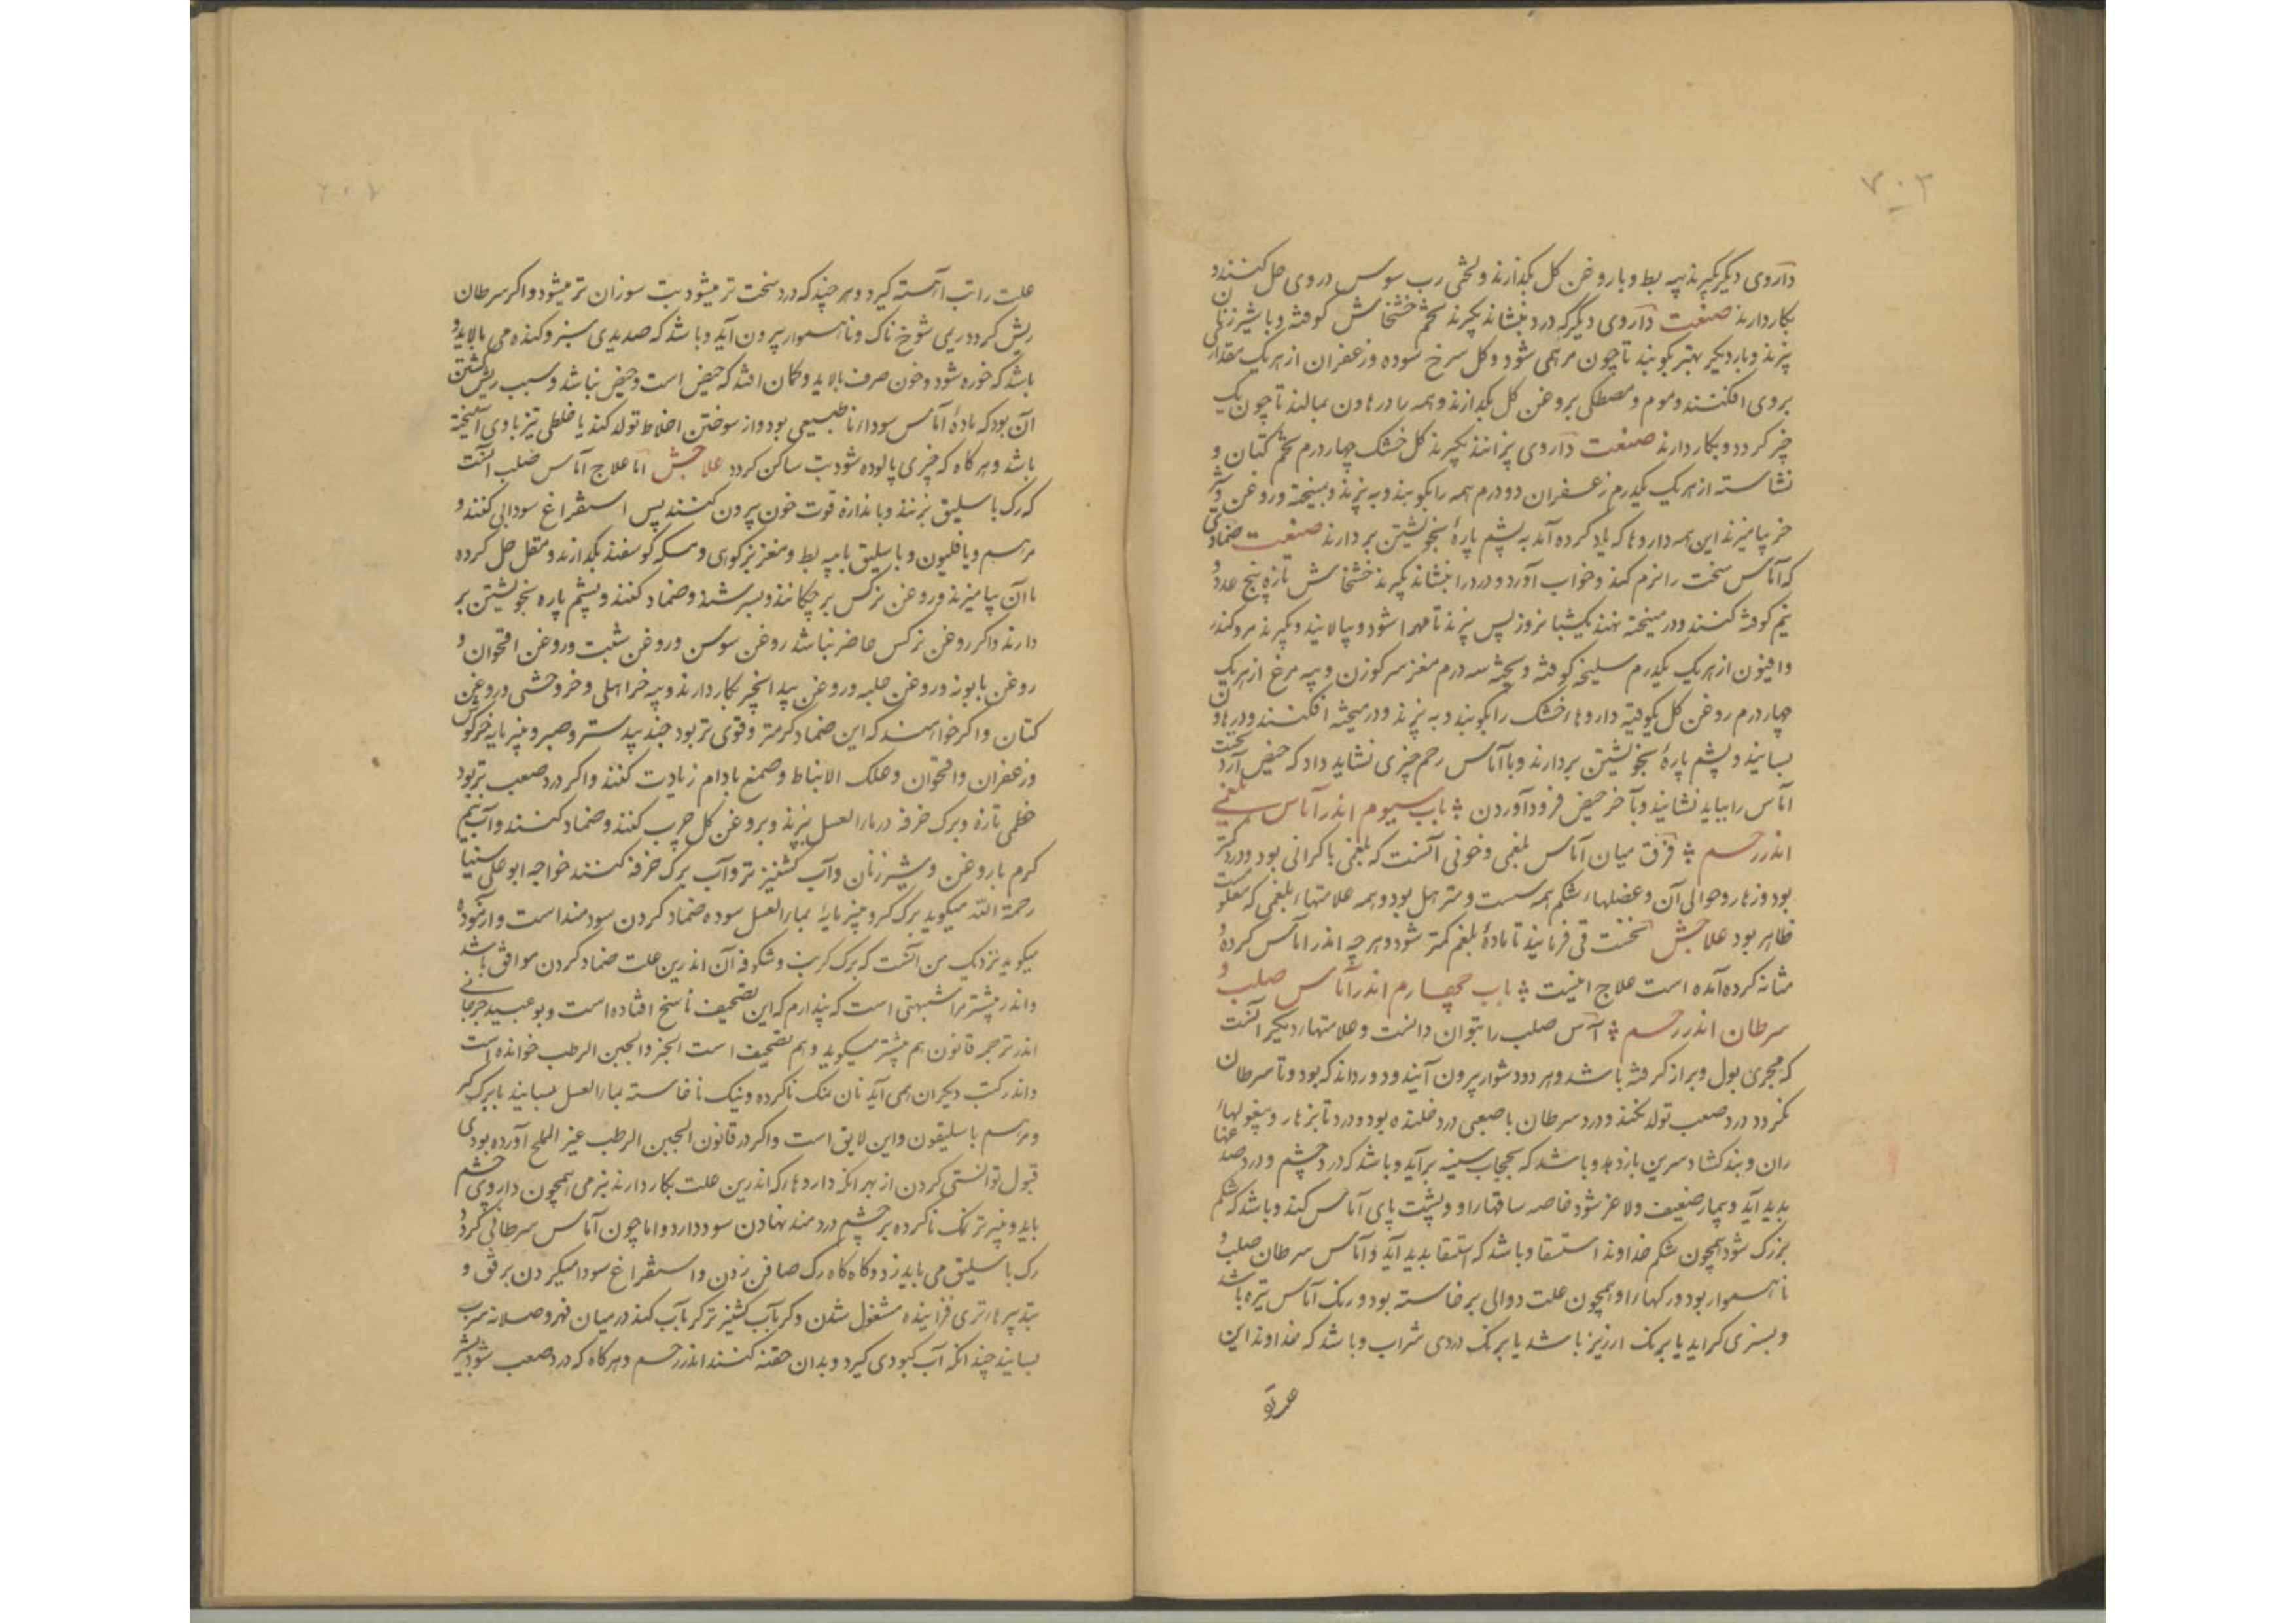 ۷۰۳
داروی دیگر بگیرند پیه بط و با روغن کل بگدازند و لختی رب سوس در وی حل کنند و
بکار دارند صفت داروی دیگر که درد بنشاند بگیرند تخم خشخاش کوفته و با شیر زنان
بپزند و بار دیگر بهتر بکوبند تا چون مرهمی شود و کل سرخ سوده و زعفران از هر یک مقدار
بروی افکنند و موم و مصطکی بروغن کل بگدازند و همه را در هاون بمالند تا چون یک
چیز کردد و بکار دارند صفت داروی پزانند بگیرند کل خشک چهار درم تخم کتان و
نشاسته از هر یک یکدرم زعفران دو درم همه را بکوبند و به پزند و بمیخته و روغن و شیر
خر بیامیزند این همه داروها که یاد کرده آمد به پشم پارهٔ بخویشتن بردارند صفت ضمادی
که آماس سخت را نرم کند و خواب آورد و درد را بنشاند بگیرند خشخاش تازه پنج عدد و
نیم کوفته کنند و در میخته نهند یکشبانروز پس بپزند تا مهرا شود و بپالایند و بگیرند مرو کندر
و افیون از هر یک یکدرم سلیخه کوفته و بیخته سه درم مغز سر کوزن و پیه مرغ از هر یک
چهار درم روغن کل یکوقیه داروهاء خشک را بکوبند و به پزند و در میخته افکنند و در هاون
بسایند و پشم پارهٔ بخویشتن بردارند و با آماس رحم چیزی نشاید داد که حیض آرد نخست
آماس را بباید نشانید و بآخر حیض فرود آوردن باب سیوم اندر آماس بلغمی
اندر رحم فرق میان آماس بلغمی و خونی آنست که بلغمی با کرانی بود و درد کمتر
بود و زهار و حوالی آن و عضلهاء شکم همه سست و مترهل بود و همه علامتهاء بلغمی که معلوست
ظاهر بود علاجش نخست قی فرمایند تا مادهٔ بلغم کمتر شود و هر چه اندر آماس کرده و
مثانه کرده آمده است علاج اینست باب چهارم اندر آماس صلب و
سرطان اندر رحم آماس صلب را بتوان دانست و علامتهاء دیگر آنست
که مجری بول و براز کرفته باشد و هر دو دشوار بیرون آیند و درد اندک بود و تا سرطان
نکردد درد صعب تولد نکند و درد سرطان با صعبی درد خلنده بود و درد تا بزهار و بیغولهاء
ران و بند کشاد سرین باز دهد و باشد که بحجاب سینه برآید و باشد که درد چشم و درد صدغها
پدید آید و بیمار ضعیف و لاغر شود خاصه ساقهاء او و پشت پای آماس کند و باشد که شکم
بزرک شود همچون شکم خداوند استسقا و باشد که استسقا پدید آید و آماس سرطان صلب و
ناهموار بود و رکها را و همچون علت دوالی برخاسته بود و رنک آماس تیره باشد
و بسبزی کراید یا برنک ارزیز باشد یا برنک دردی شراب و باشد که خداوند این
علت را تب آهسته کیرد و هر چند که درد سخت تر میشود تب سوزان تر میشود و اکر سرطان
ریش کردد ریمی شوخ ناک و ناهموار بیرون آید و باشد که صدیدی سبز و کنده می پالاید و
باشد که خوره شود و خون صرف پالاید و کمان افتد که حیض است و حیض نباشد و سبب ریش کشتن
آن بود که مادهٔ آماس سوداء نا طبیعی بود و از سوختن اخلاط تولد کند یا خلطی تیز با وی آمیخته
باشد و هر کاه که چیزی پالوده شود تب ساکن کردد علاجش اما علاج آماس صلب آنست
که رک باسلیق بزنند و باندازهٔ قوت خون بیرون کنند پس استفراغ سودایی کنند و
مرهم دیاخلیون و باسلیق با پیه بط و مغز بز کوهی و مسکه کوسفند بگدازند و مقل حل کرده
با آن بیامیزند و روغن نرکس بر چکانند و بسرشند و ضماد کنند و پشم پاره بخویشتن بر
دارند و اکر روغن نرکس حاضر نباشد روغن سوسن و روغن شبت و روغن اقحوان و
روغن بابونه و روغن حلبه و روغن بیدانجیر بکار دارند و پیه خر اهلی و خر وحشی و روغن
کتان و اکر خواهند که این ضماد کرمتر و قوی تر بود جند بیدستر و صبر و پنیر مایه خرکوش
و زعفران و اقحوان و علک الانباط و صمغ بادام زیادت کنند و اکر درد صعب تر بود
خطمی تازه و برک خرفه در ماءالعسل بپزند و بروغن کل چرب کنند و ضماد کنند و آب نیم
کرم با روغن و شیر زنان و آب کشنیز تر و آب برک خرفه کنند خواجه ابو علی سینا
رحمة الله میکوید برک کرو پنیر مایهٔ بماءالعسل سوده ضماد کردن سودمند است و آزموده
میکوید نزدیک من آنست که برک کرنب و شکوفه آن اندرین علت ضماد کردن موافق باشد
و اندر پنیر تر مرا شبهتی است که پندارم که این تصحیف ناسخ افتاده است و بو عبید جرجانی
اندر ترجمه قانون هم پنیر تر میکوید و هم تصحیف است الخبز و الجبن الرطب خوانده است
و اندر کتب دیکران همی آید نان نمک ناکرده و نیک نا خاسته بماءالعسل بسایند با برک کبر
و مرهم باسلیقون و این لایق است و اکر در قانون الجبن الرطب غیر الملح آورده بودی
قبول توانستی کردن از بهر آنکه داروها را که اندرین علت بکار دارند نرمی همچون داروی چشم
باید و پنیر تر نمک ناکرده بر چشم دردمند نهادن سود دارد و اما چون آماس سرطانی کردد
رک باسلیق می باید زد و کاه کاه رک صافن زدن و استفراغ سودا میکردن برفق و
بتدبیرهاء تری فزاینده مشغول شدن و کر بآب کشنیز تر کر بآب کند در میان فهر و صلابه سرب
بسایند چندانکه آب کبودی کیرد و بدان حقنه کنند اندر رحم و هر کاه که درد صعب شود شیر